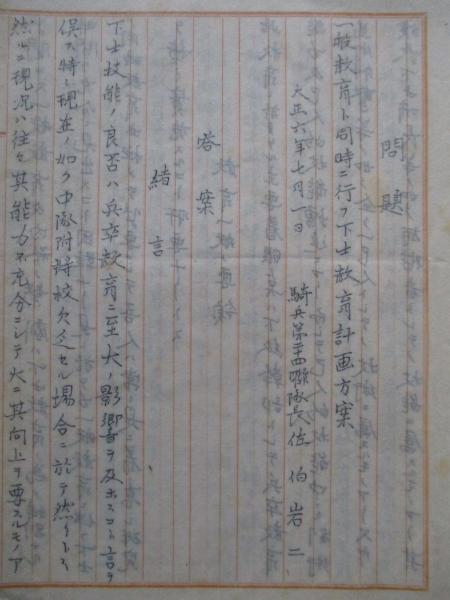 問題
一般教育ト同時ニ行フ下士教育計画方案
大正六年七月一日
騎兵第二十四聯隊長佐伯岩二
答案
緒言
下士技能ノ良否ハ兵卒教育ニ至大ノ影響ヲ及ホスコト言ヲ
俟タス特ニ現在ノ如ク中隊附将校欠乏セル場合ニ於テ然リトス
然ルニ現況ハ往々其能力不充分ニシテ大ニ其向上ヲ要スルモノア